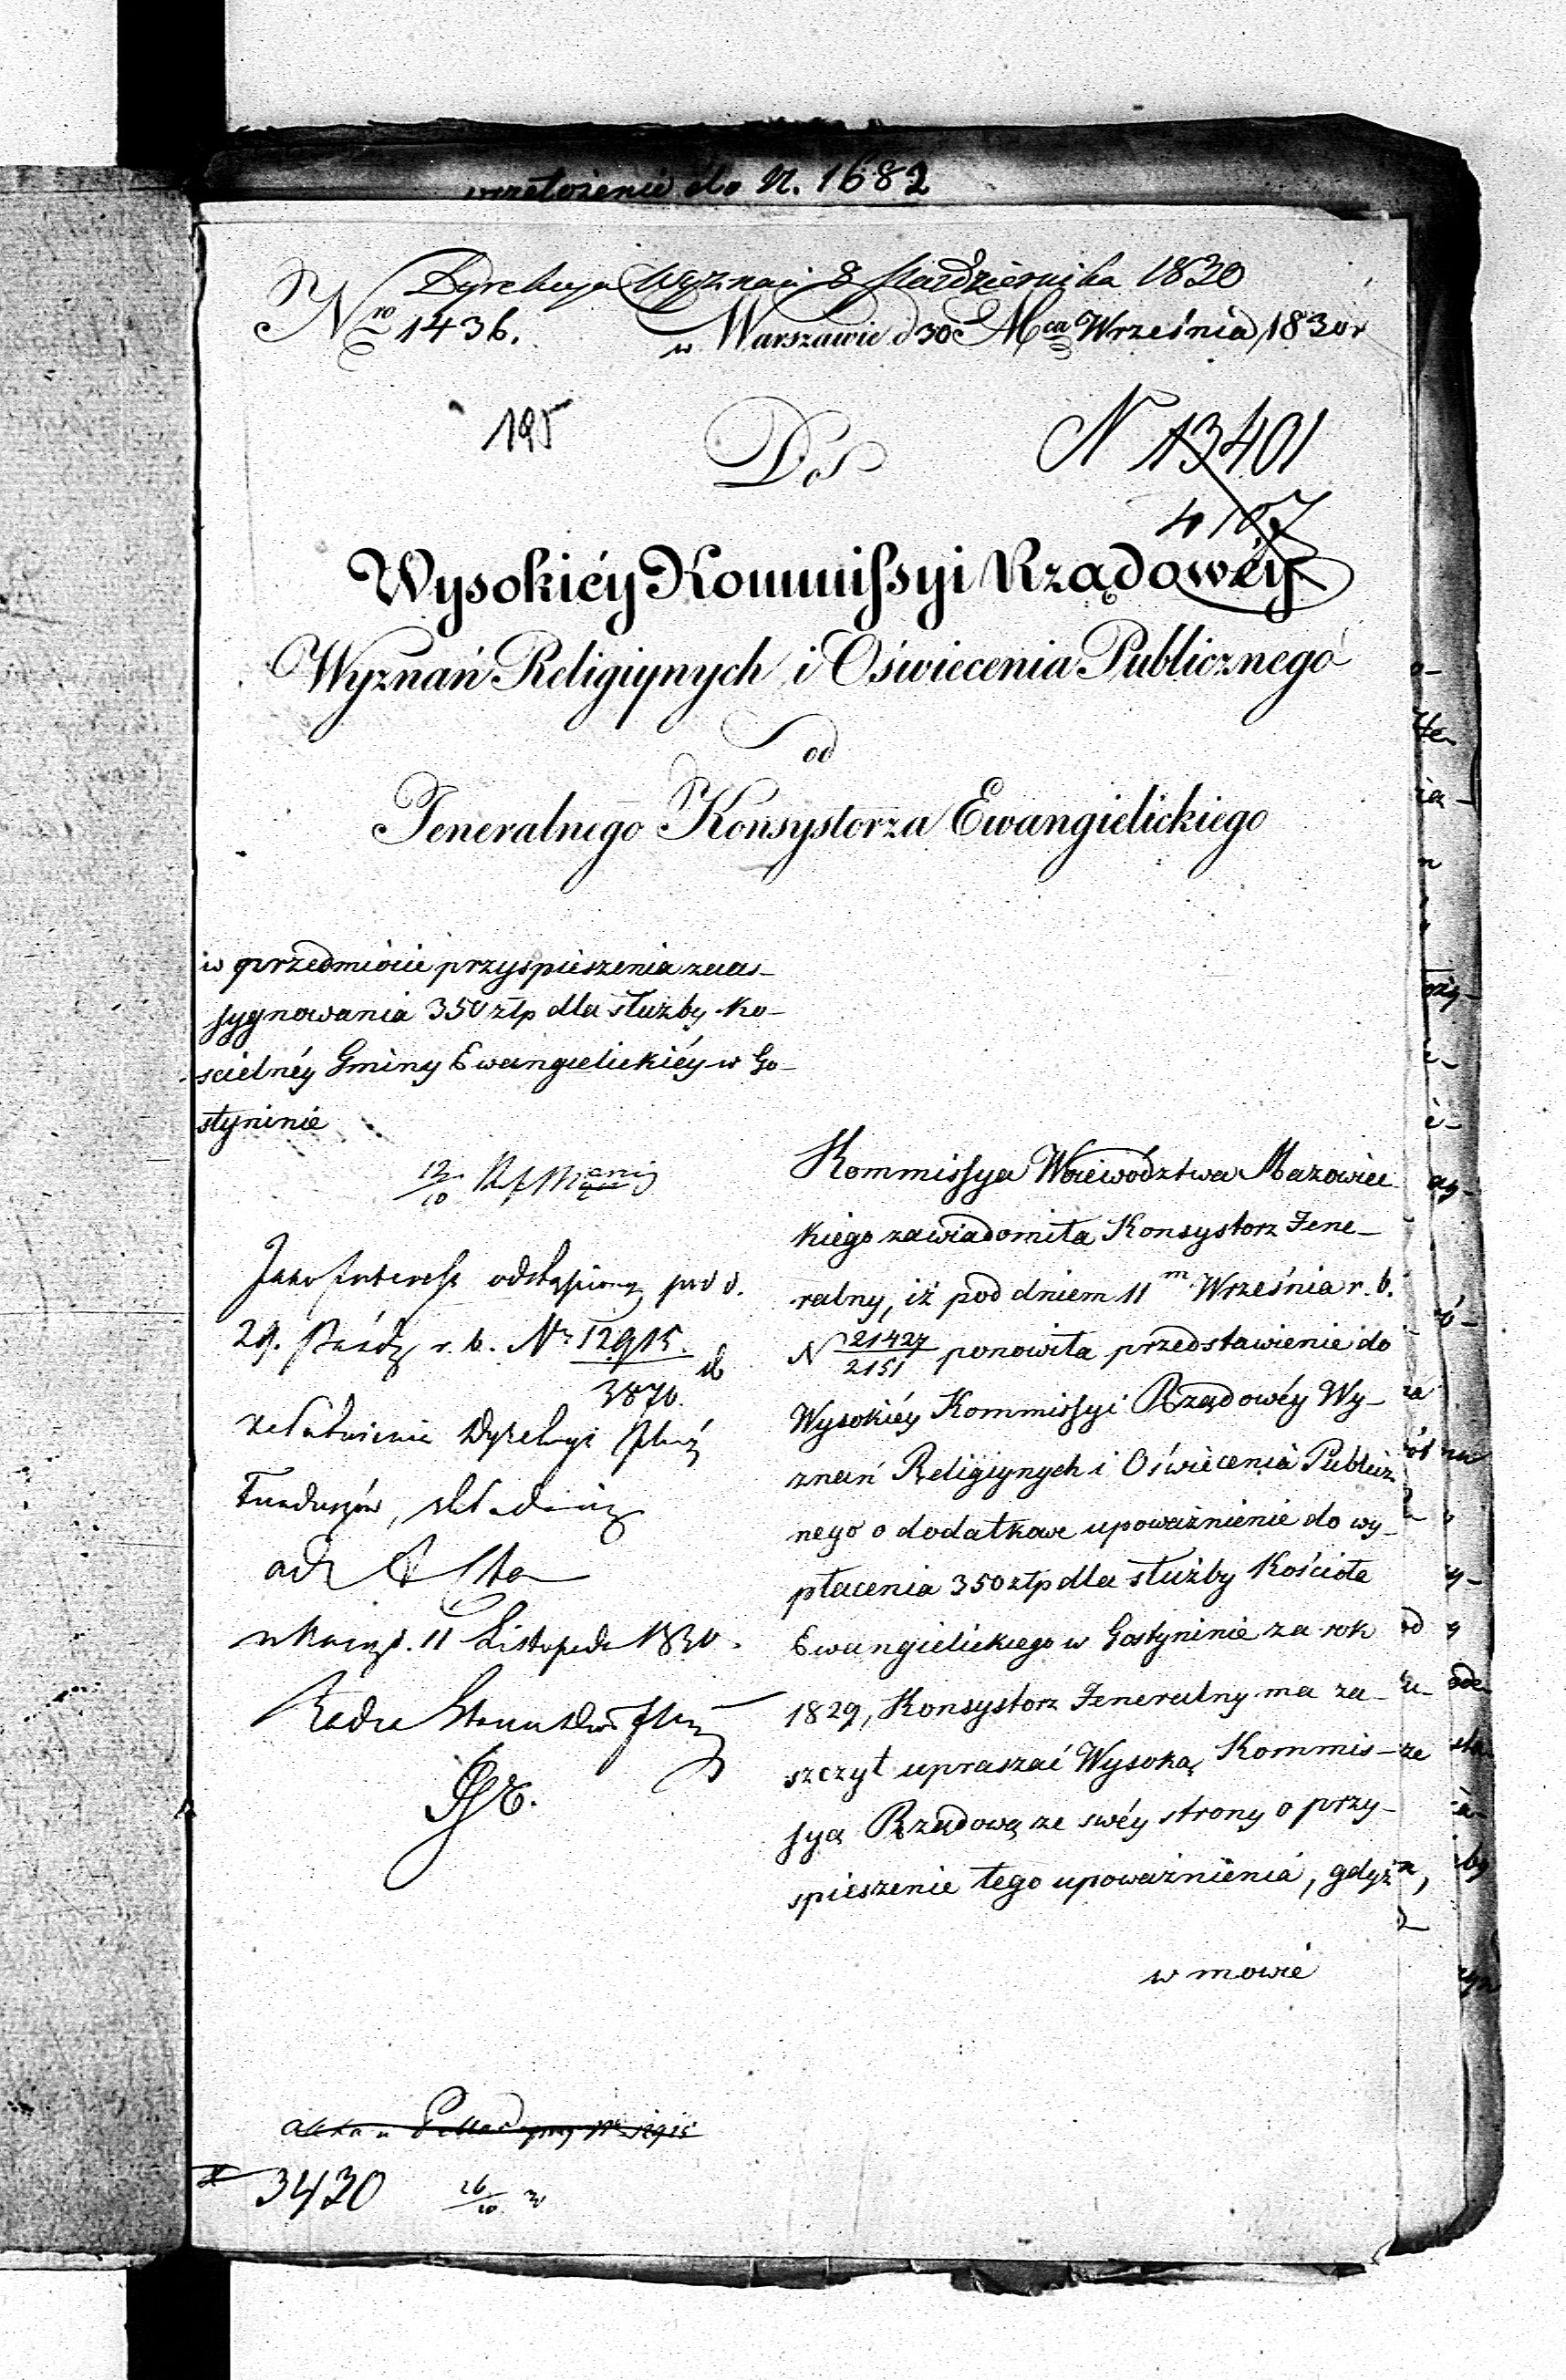 do N. 1682
Dyrekcya Wyznań 8 Października 1830
Nro 1436. w Warszawie d 30 Mca Września 1830 r
195 Do N 13401
4107
Wysokiéy Kommissyi Rządowéy
Wyznań Religiynych i Oświecenia Publicznego
od
Jeneralnego Konsystorza Ewangielickiego
w przedmiocie przyspieszenia zaas-
sygnowania 350 złp dla służby Ko-
scielnéy Gminy Ewangielickiéy w Go-
styninie
12/10
Jako interess odstąpiony pod d.
29. Paźdz r. b. Nr 12915. do
3870.
załatwienia Dyrekcyi
Funduszów, składa się
ad Acta
w Warsz d. 11 Listopada 1830.
Radca Stanu
Kommissya Woiewództwa Mazowiec
kiego zawiadomiła Konsystorz Jene-
ralny, iż pod dniem 11m Września r. b.
N 21427/2151 ponowiła przedstawienie do
Wysokiéy Kommissyi Rządowéy Wy-
znań Religiynych i Oświecenia Publicz
nego o dodatkowe upoważnienie do wy-
płacenia 350 złp dla służby Kościoła
Ewangielickiego w Gostyninie za rok
1829, Konsystorz Jeneralny ma za-
szczyt upraszać Wysoką Kommis-
syą Rządową ze swéy strony o przy-
spieszenie tego upoważnienia, gdyż
w mowie
3430 26/10